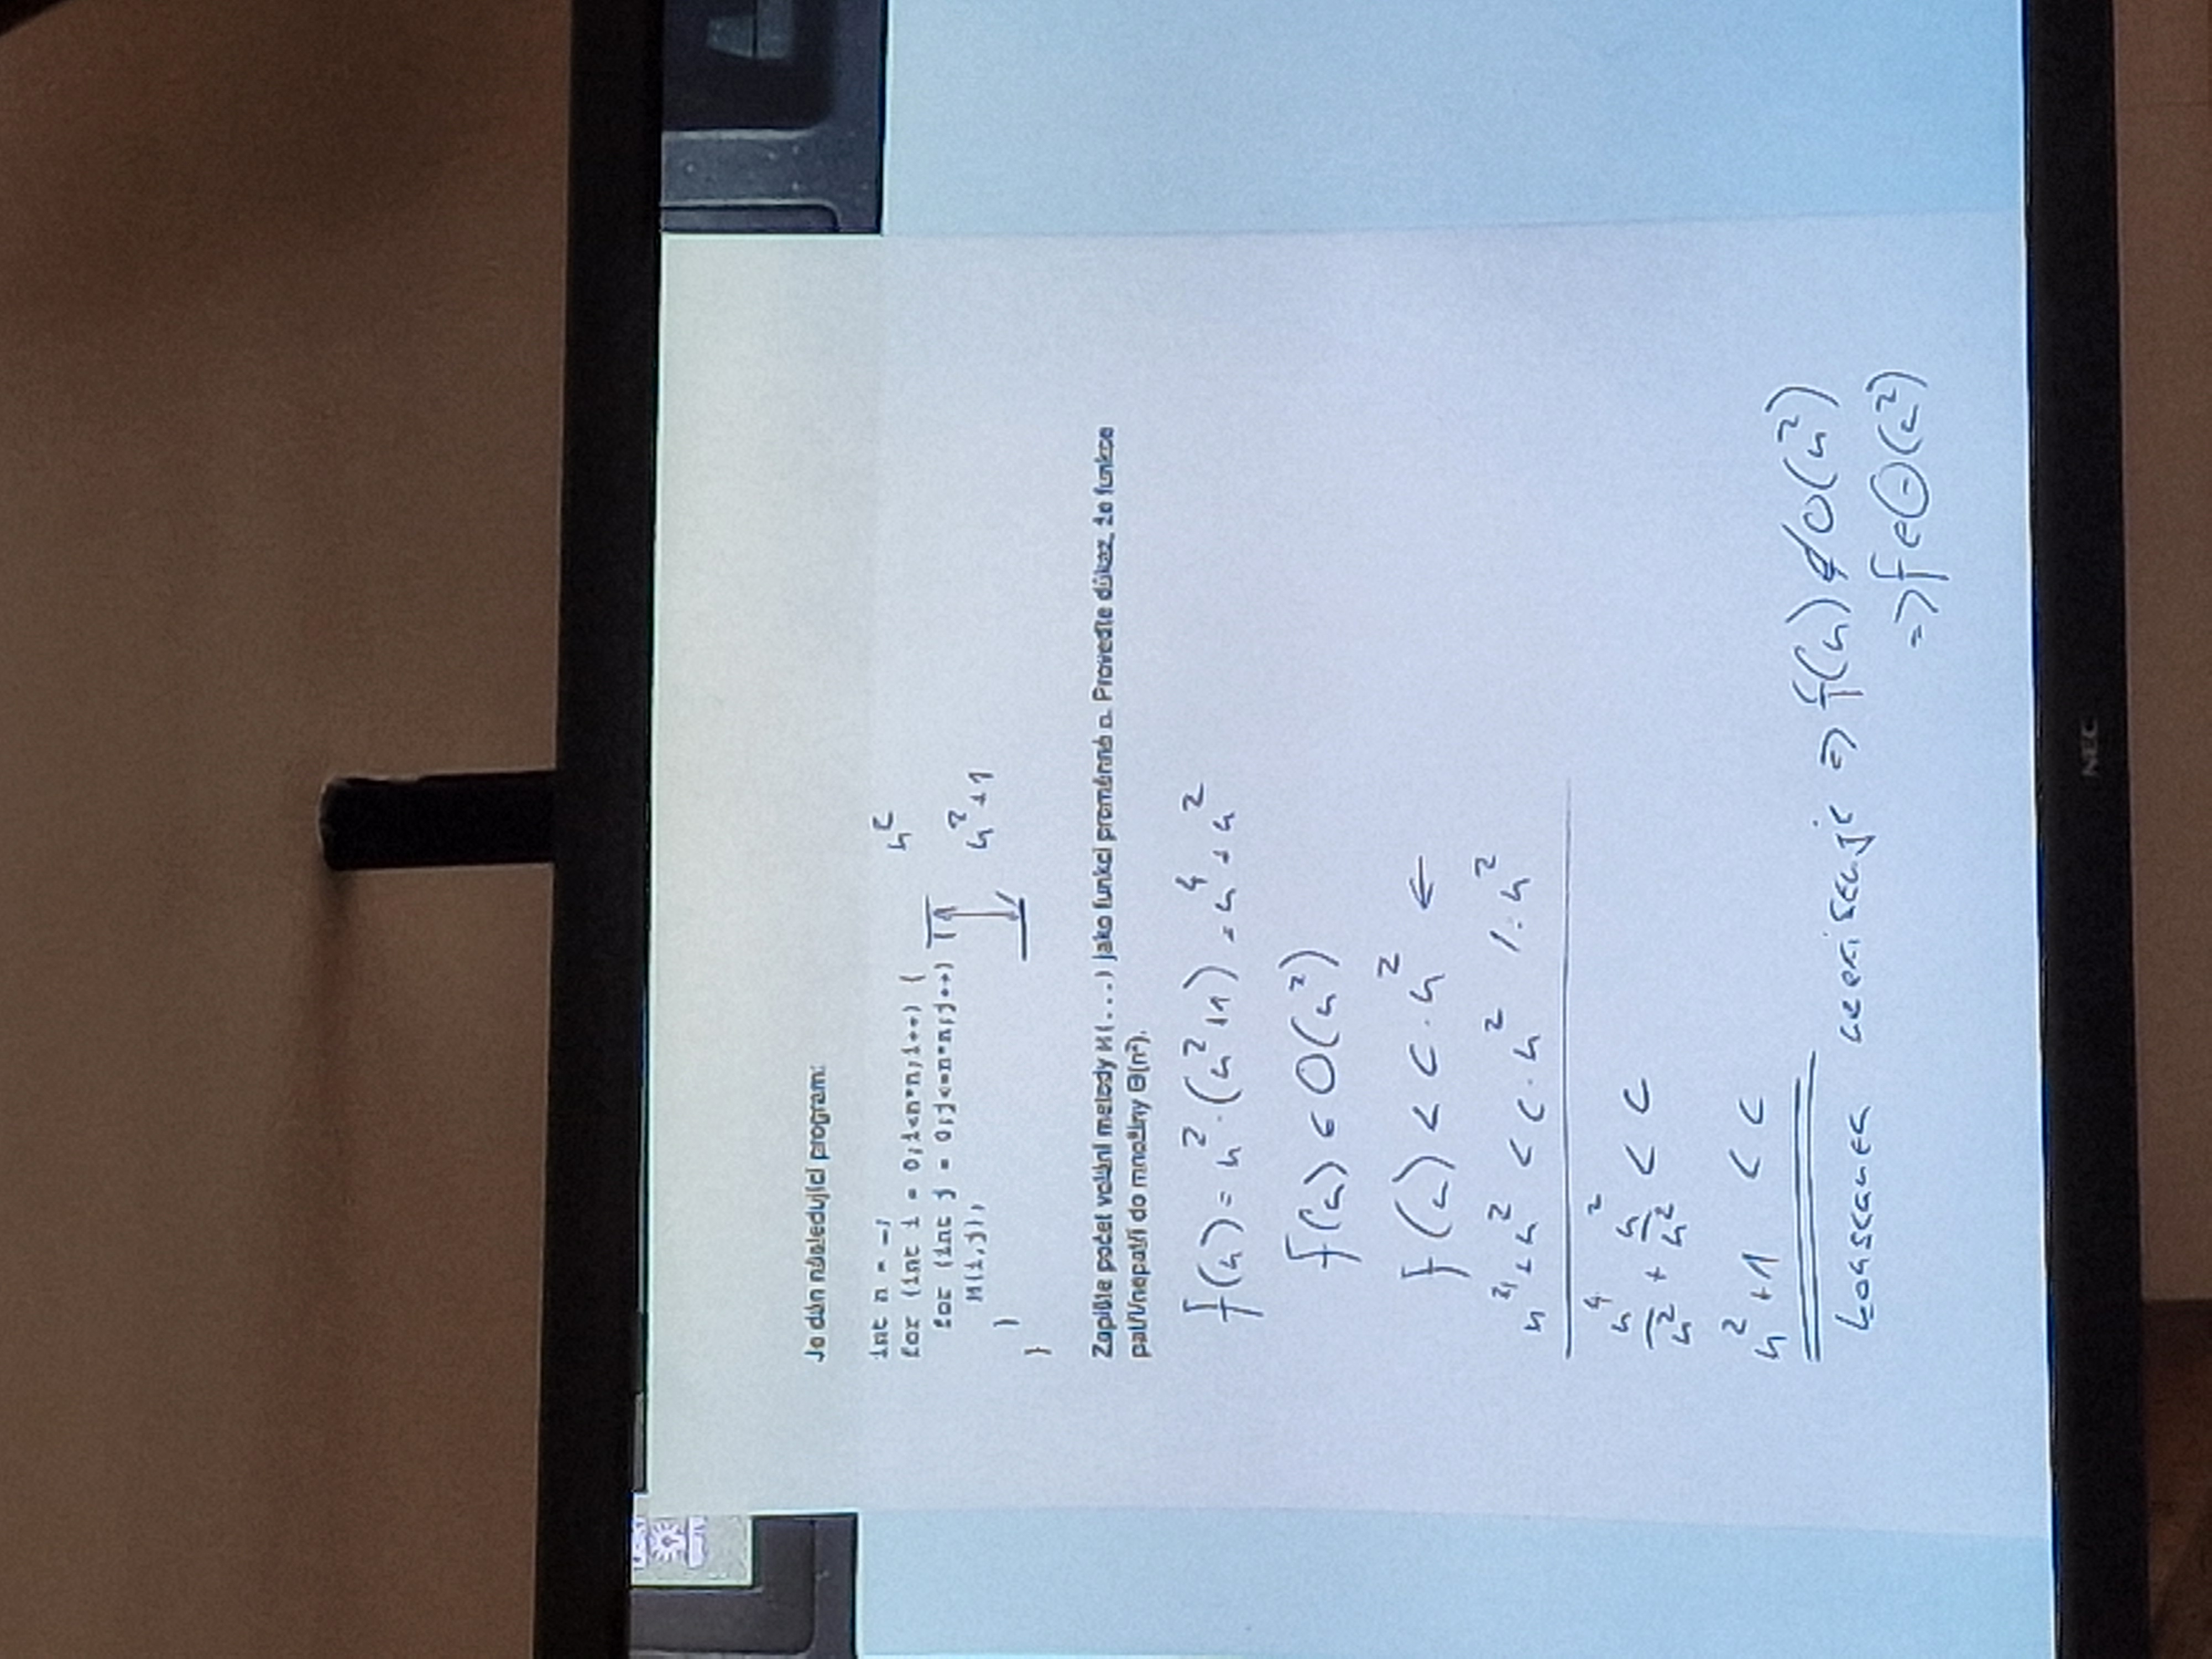 Je dán následující program:
int n = …;
for (int i = 0;i<n*n;i++) {
n²
for (int j = 0;j<=n*n;j++) {
M(i,j);
n²+1
}
}
Zapište počet volání metody M(...) jako funkci proměnné n. Proveďte důkaz, že funkce
patří/nepatří do množiny Θ(n²).
f(n) = n² · (n²+1) = n⁴ + n²
f(n) ∈ O(n²)
f(n) < c · n² ←
n⁴ + n² < c · n² /: n²
n⁴/n² + n²/n² < c
n² + 1 < c
konstanta neexistuje ⇒ f(n) ∉ O(n²)
⇒ f ∈ Θ(n²)
NEC